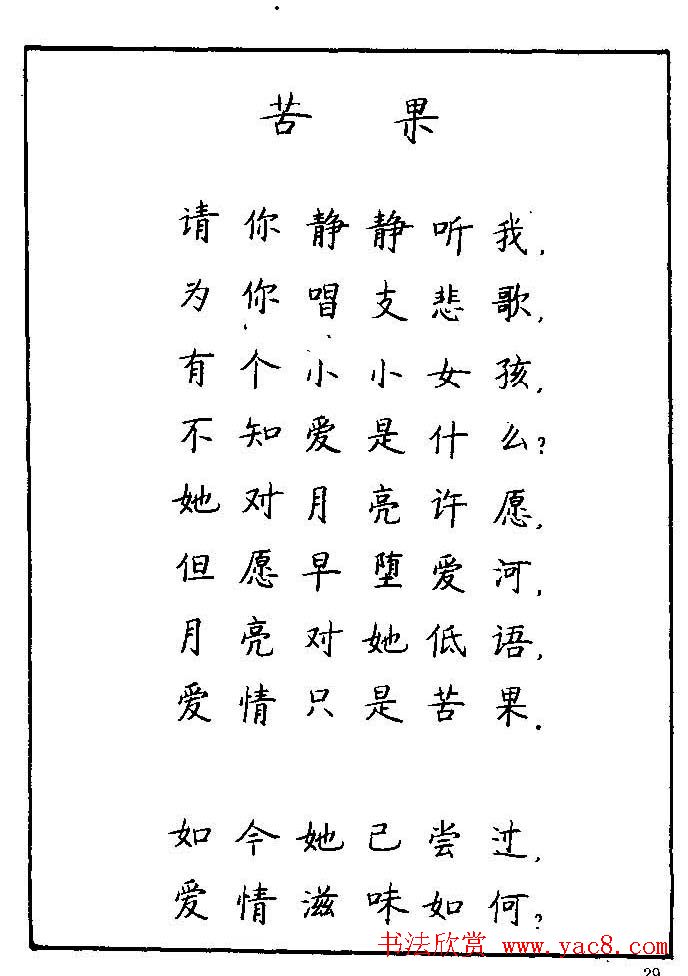 苦果
请你静静听我,
为你唱支悲歌,
有个小小女孩,
不知爱是什么?
她对月亮许愿,
但愿早堕爱河,
月亮对她低语,
爱情只是苦果.
如今她已尝过,
爱情滋味如何?
书法欣赏 www.yac8.com
29